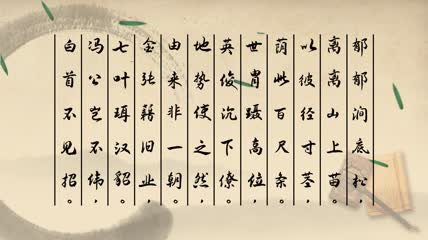 郁郁涧底松，
离离山上苗。
以彼径寸茎，
荫此百尺条。
世胄蹑高位，
英俊沉下僚。
地势使之然，
由来非一朝。
金张籍旧业，
七叶珥汉貂。
冯公岂不伟，
白首不见招。